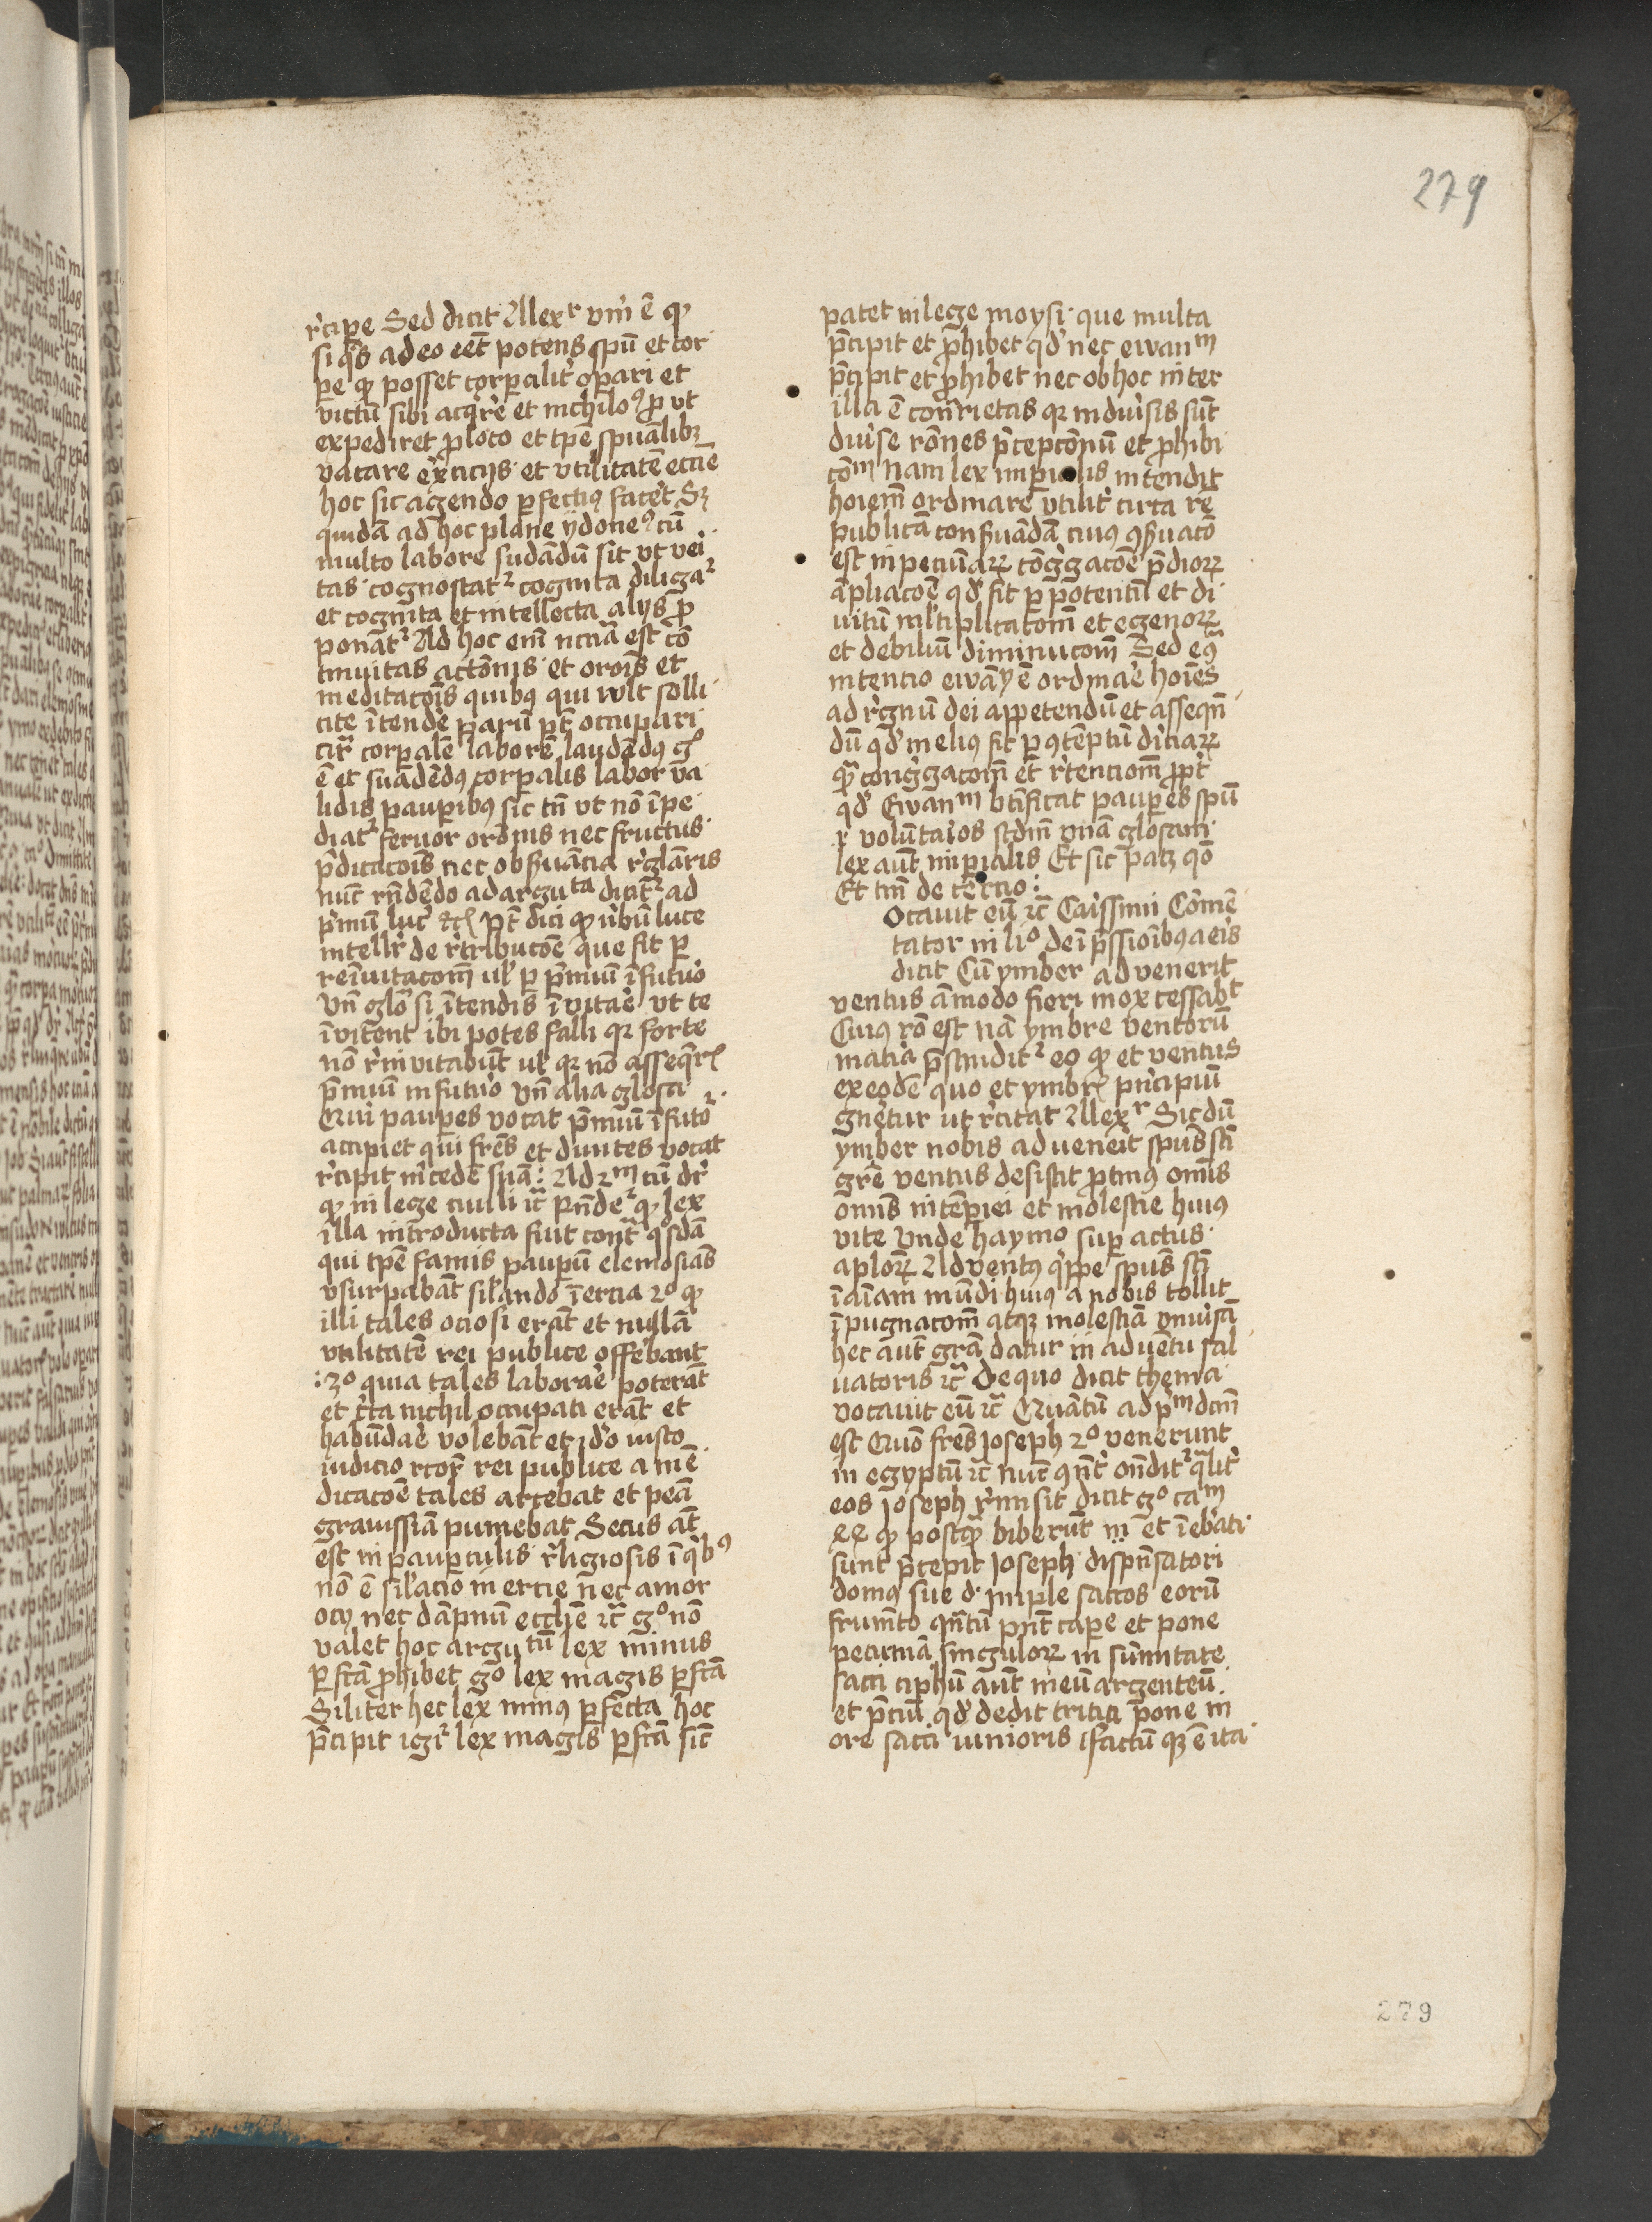 279
r̉cipe Sed dicit Allexr vm̉ ē ꝙ
si q̉s ad eo eēt potens spū et cor
pe ꝙ posset corpalit̉ opari et
victū sibi acq̉rē et nichiloꝰ ꝓ vt
expediret ꝓ loco et tpē spūalibꝫ
vacare ex̉ticijs et vtilitatē ecciē
hoc sic agendo perfectiꝰ facet̉ Sꝫ
quidā ad hoc plane ydoneꝰ cū
multo labore sudādū sit vt vei
tas cognoscat̉ cognita diligat̉
et cognita et intellecta alijs ꝓ
ponāt̉ Ad hoc em̄ nccia est cō
tinuitas actōnis et orōis et
meditacōis quibꝰ qui wlt solli
cite ītende parū pt̄ occupari
cir̄ corpalē laborē laudādꝰ gͦ
ē et suādēdꝰ corpalis labor va
lidis paupibꝰ sic tn̄ vt nō īpe
diat̉ feruor orōnis nec fructus
p̄dicacōis nec obseruācia r̉glāris
nūc rn̄dēdo ad arguta dicit̉ ad
p̉mū luc̉ etc̄ Pt̄ dici ꝙ v̉bū luce
intelligr̉ de r̉tribucōe que fit p
reīuitacōm̄ ul̉ p p̄miū ī futuo
vn̄ glo si ītendis īvitāe vt te
īvitent ibi potes falli qꝛ forte
nō r̉invitabūt ul̉ qꝛ nō asseq̉r̄
p̄miū in futuo vn̄ alia glosa
Qui paupes vocat p̄miū ī futō
accipiet qui frēs et diuites vocat
r̉cipit m̉cedē suā : Ad 2m cū dr̉
ꝙ in lege ciuili ic̄ Rn̄dẻ ꝙ lex
illa introducta fuit cont̄ qͦsdā
qui tpē famis paupū elemosīas
vsurpabāt sil̉ando īercia 2o ꝙ
illi tales ociosi erāt et nullā
vtilitatē rei publice offebant
: 3o quia tales laborāe poterāt
et c̉ta nichil occupati erāt et
habūdāe volebāt et iđo iusto
iudicio rcōr̄ rei publice a mē
dicacōe tales arcebat et penā
grauissiā puniebat Secus āt
est in paupculis r̉ligiosis ī q̉bꝰ
nō ē sil̉acio in ercie nec amor
ocij nec dāpnū ecclīe ic̄ gͦ nō
valet hoc argutū lex minus
pfctā ꝓhibet gͦ lex magis pfctā
Siliter hec lex minꝰ pfecta hoc
p̄cipit igr̉ lex magis pfctā sic̄
patet in lege moysi que multa
p̄cipit et ꝓhibet qđ nec ewanm
p̄cipit et ꝓhibet nec ob hoc inter
illa ē cont̄rietas qꝛ in diuisis sūt
diuise rōnes p̄cepcōnū et ꝓhibi
cōm nam lex imp̉ialis intendit
hoiem̄ ordinare vtilit̉ circa rē
publicā conseruādā cuiꝰ ꝯseruacō
est in pecuīaꝝ cōg̉gacōe p̄dioꝝ
āpliacōe qđ fit p potenciū et di
uitū ml̉tiplicacōm̄ et egenoꝝ
et debiliū diminucōm̄ Sed eꝰ
intencio ewāy ē ordināe hoīes
ad r̉gnū dei appetendū et asseqn̄
dū qđ meliꝰ fit p ꝯtēptū diciaꝝ
qͣ cong̉gacōm̄ et r̉tenciōm̄ ꝓpt̉
qđ Ewanm btīficat paupes spū
.i. volūtaios scd̄m vnā glosam
lex aūt imp̉ialis Et sic patꝫ qō
Et tm̄ de tercio :
Ocauit eū ic̄ Carissimi Cōmē
tator in liͦ de īp̄ssiōibꝰ aeris
dicit Cū ymber advenerit
ventus āmodo fieri mox cessabt
Cuiꝰ rō est nā ymbre ventorū
matia p̄scindit̉ eo ꝙ et ventus
ex eodē quo et ymbr̄ p̉ncipiū
gnetur ut r̉citat Allexr Sic dū
ymber nobis adueneit spūs sc̄i
grē ventus desistit ꝓtinꝰ om̄is
om̄is intēpiei et molestie huiꝰ
vite Vnde haymo sup actus
aplorꝝ Adventꝰ q̉ppe spūs sc̄i
ī aīam mūdi huiꝰ a nobis tollit
īpugnacōm̄ atqꝫ molestiā vniuisā
hec aūt grā datur in aduentu sal
uatoris ic̄ De quo dicit thema
vocauit eū ic̄ Quātū ad p̉m dcm̄
est Quō frēs Joseph 2o venerunt
in egyptū ic̄ nūc ꝯn̄t̉ on̄dit̉ qͣlit̉
eos Joseph r̉misit dicit gͦ cam
ꝙ postqͣ biberūt et īeb̉ati
sunt p̄cepit Joseph dispn̄satori
domꝰ sue đ imple saccos eorū
frumēto qn̄tū pn̄t cape et pone
pecuniā singuloꝝ in sum̄itate
sacci ciphū aūt meū argenteū
et p̄ciū qđ dedit tritici pone in
ore sacci iunioris factū qꝫ ē ita
279